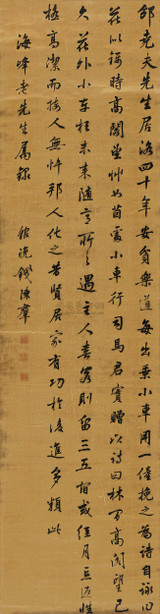 邵堯夫先生居洛四十年安貧樂道每出乘小車用一僮挽之為詩自詠曰
花似錦時高閣望草如茵處小車行司馬君實贈以詩曰林間高閣望已
久花外小車猶未來隨意所之遇主人喜客則留三五宿或經月忘返雖
極高潔而接人無忤邦人化之昔賢居家有功於後進多類此
海峰老先生屬録 錢陳群